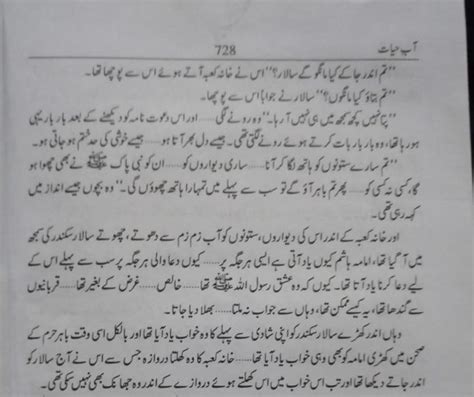 آبِ حیات 728
’’تم اندر جا کے کیا مانگو گے سالار؟‘‘ اس نے خانہ کعبہ آتے ہوئے اس سے پوچھا تھا۔
’’تم بتاؤ کیا مانگوں؟‘‘ سالار نے جواباً اس سے پوچھا۔
’’پتا نہیں کچھ سمجھ میں ہی نہیں آ رہا۔‘‘ وہ رونے لگی......اور اس دعوت نامہ کو دیکھنے کے بعد بار بار یہی
ہو رہا تھا، وہ بار بار بات کرتے ہوئے رونے لگتی تھی۔ جیسے دل بھر آتا ہو......جیسے خوشی کی حد ختم ہو جاتی ہو۔
’’تم سارے ستونوں کو ہاتھ لگا کر آنا......ساری دیواروں کو......ان کو نبی پاک ﷺ نے بھی چھوا ہو
گا، کسی نہ کسی کو......پھر تم باہر آؤ گے تو سب سے پہلے میں تمہارا ہاتھ چھوؤں گی۔‘‘ وہ بچوں جیسے انداز میں
کہہ رہی تھی۔
اور خانہ کعبہ کے اندر اس کی دیواروں، ستونوں کو آب زم زم سے دھوتے، چھوتے سالار سکندر کی سمجھ
میں آ گیا تھا، امامہ ہاشم کیوں یاد آتی ہے ایسی ہر جگہ پر......کیوں دعا والی ہر جگہ پر سب سے پہلے اس کے
لیے دعا کرنا یاد آتا تھا۔ کیوں کہ وہ عشق رسول اللہ ﷺ تھا......خالص......غرض کے بغیر تھا......قربانیوں
سے گندھا تھا، یہ کیسے ممکن تھا، وہاں سے جواب نہ ملتا......بھلا دیا جاتا۔
وہاں اندر کھڑے سالار سکندر کو اپنی شادی سے پہلے کا وہ خواب یاد آیا تھا اور بالکل اسی وقت باہر حرم کے
صحن میں کھڑی امامہ کو بھی وہی خواب یاد آیا تھا......خانہ کعبہ کا وہ کھلتا دروازہ جس سے اس نے آج سالار کو
اندر جاتے دیکھا تھا اور تب اس خواب میں اس کھلتے ہوئے دروازے کے اندر وہ جھانک بھی نہیں سکی تھی۔